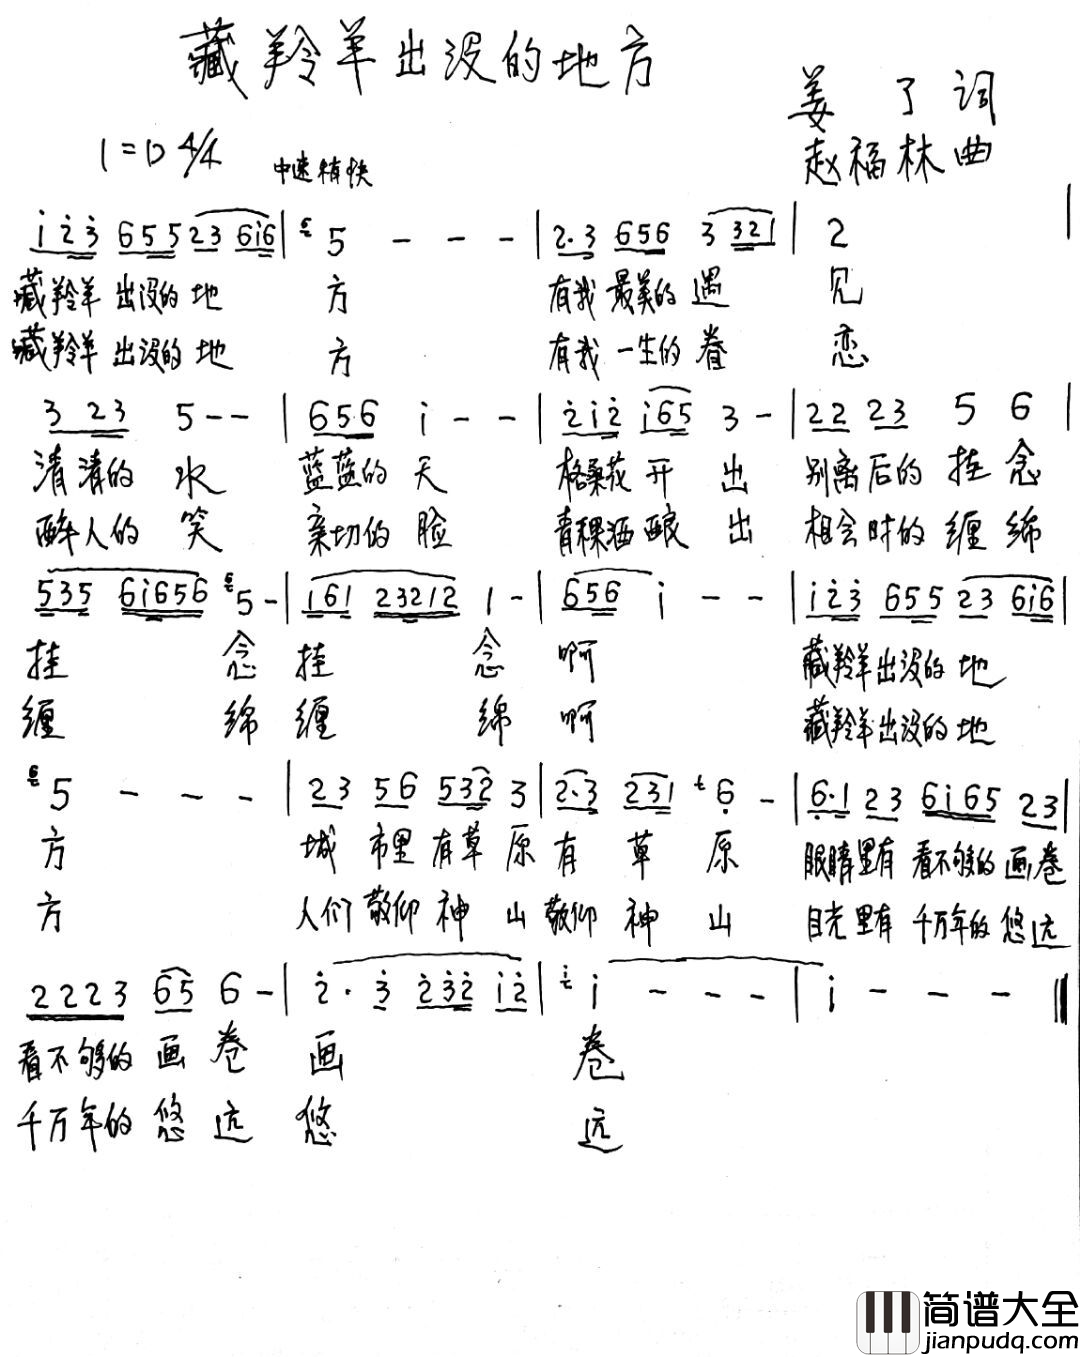 藏羚羊出没的地方
姜 了 词
赵福林 曲
1=D 4/4 中速稍快
i̲ 2̇ 3̇ 655 23 6i6 | 5 - - - | 2·3 656 3 321 | 2 |
藏羚羊 出没的 地 方 有我 最美的 遇 见
藏羚羊 出没的 地 方 有我 一生的 眷 恋
3 23 5 - - | 656 i - - | 2̇i2̇ i65 3 - | 22 23 5 6 |
清清的 水 蓝蓝的 天 格桑花 开 出 别离后的 挂 念
醉人的 笑 亲切的 脸 青稞酒 酿 出 相会时的 缠 绵
535 6i656 5 - | i61 23212 1 - | 656 i - - | i2̇3̇ 655 23 6i6 |
挂 念 挂 念 啊 藏羚羊 出没的 地
缠 绵 缠 绵 啊 藏羚羊 出没的 地
5 - - - | 23 56 532 3 | 2·3 231 6̣ - | 6̣·1 23 6i65 23 |
方 城 市里 有草 原 有 草 原 眼睛里有 看不够的 画卷
方 人们 敬仰 神 山 敬仰 神 山 目光里有 千万年的 悠远
2223 65 6 - | 2̇· 3̇ 2̇3̇2̇ i2̇ | i - - - | i - - - ‖
看不够的 画 卷 画 卷
千万年的 悠 远 悠 远
简谱大全
jianpudq.com